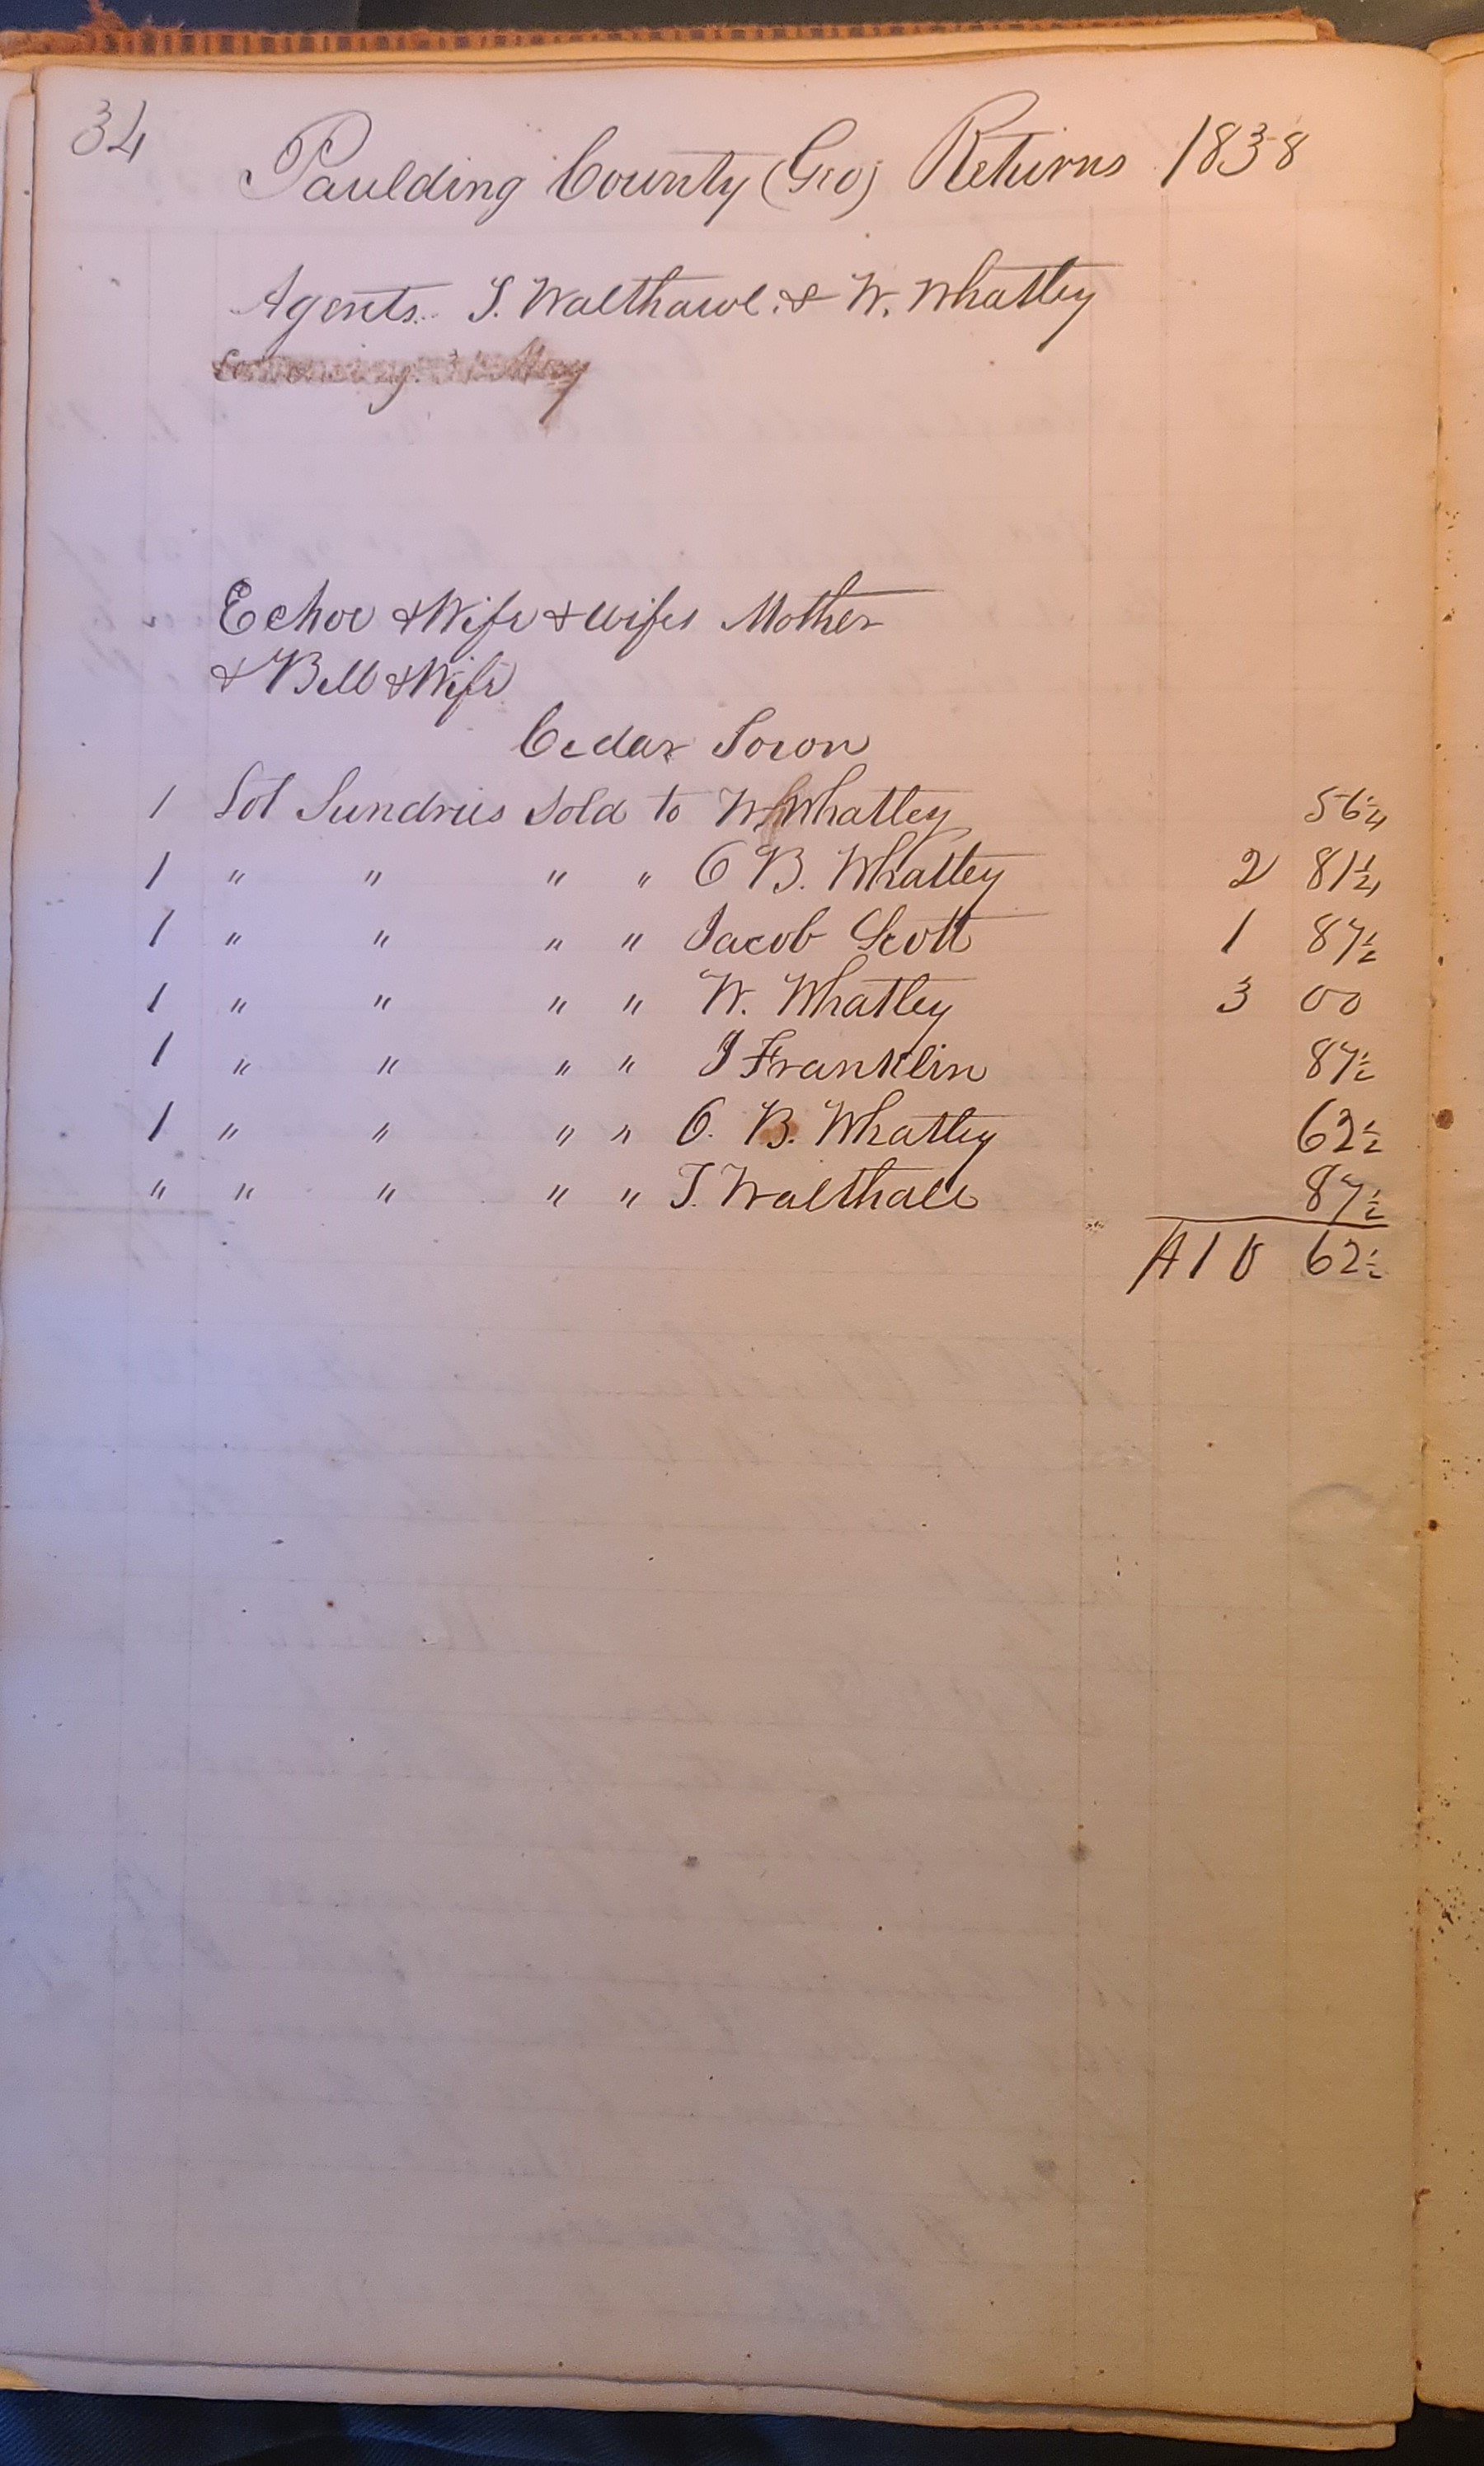 34
Paulding County (Geo) Returns 1838
Agents. T. Walthawl. & W. Whatley
Echoe & Wife & wifes Mother
& Bell & Wife
Cedar Town
1 Lot Sundries Sold to W. Whatley 56¼
1 " " " " O B. Whatley 2 81¼
1 " " " " Jacob Scott 1 87½
1 " " " " W. Whatley 3 00
1 " " " " J Franklin 87½
1 " " " " O. B. Whatley 62½
" " " " " T. Walthall 87½
A 10 62½